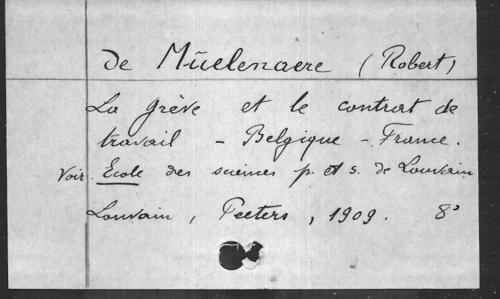 de Mŭelenaere (Robert)
La grève et le contrat de
travail – Belgique – France.
Voir Ecole des sciences p. et s. de Louvain
Louvain, Peeters, 1909. 8°